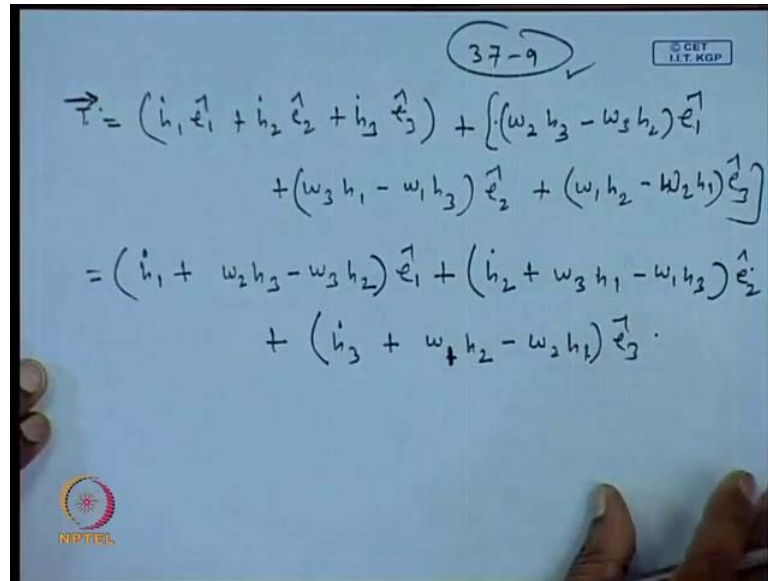 37-9
© CET
I.I.T. KGP
τ⃗ = (ḣ₁ ê₁ + ḣ₂ ê₂ + ḣ₃ ê₃) + [(ω₂h₃ - ω₃h₂) ê₁
+ (ω₃h₁ - ω₁h₃) ê₂ + (ω₁h₂ - ω₂h₁) ê₃]
= (ḣ₁ + ω₂h₃ - ω₃h₂) ê₁ + (ḣ₂ + ω₃h₁ - ω₁h₃) ê₂
+ (ḣ₃ + ω₁h₂ - ω₂h₁) ê₃.
NPTEL